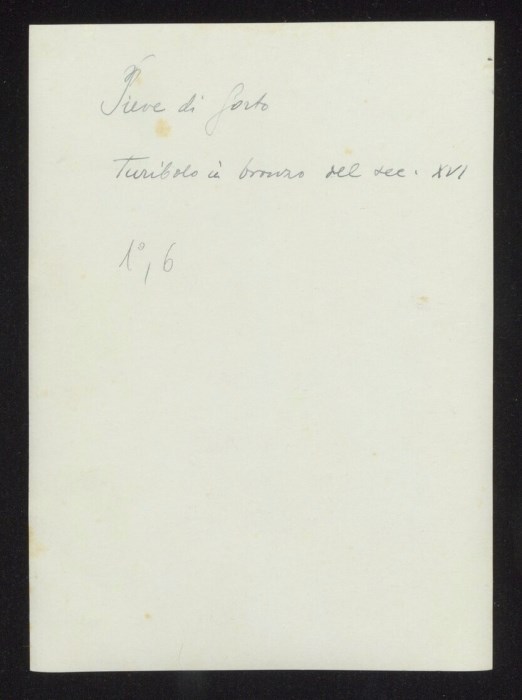 Pieve di Gorto
Turibolo in bronzo del sec. XVI
1°, 6